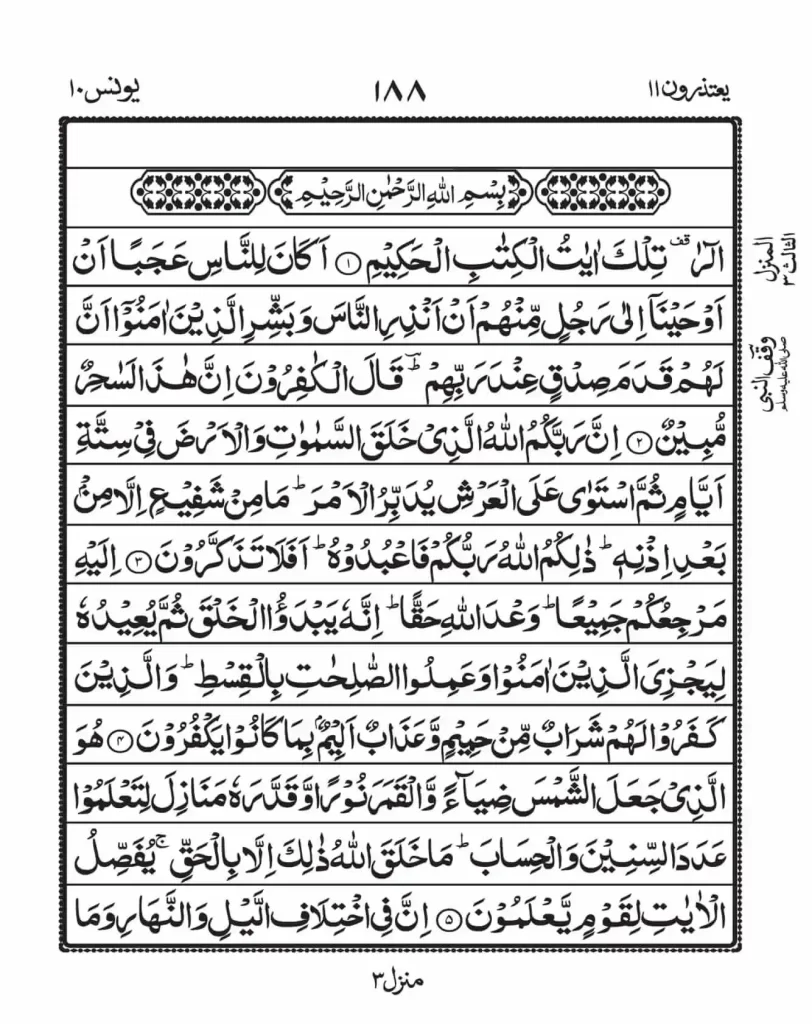 یعتذرون ١١ ١٨٨ یونس ١٠
بِسْمِ اللّٰهِ الرَّحْمٰنِ الرَّحِيْمِ
الٓرٰ ۚقف تِلْكَ اٰيٰتُ الْكِتٰبِ الْحَكِيْمِ ۝١ اَكَانَ لِلنَّاسِ عَجَبًا اَنْ
اَوْحَيْنَاۤ اِلٰى رَجُلٍ مِّنْهُمْ اَنْ اَنْذِرِ النَّاسَ وَبَشِّرِ الَّذِيْنَ اٰمَنُوْۤا اَنَّ
لَهُمْ قَدَمَ صِدْقٍ عِنْدَ رَبِّهِمْ ؕ قَالَ الْكٰفِرُوْنَ اِنَّ هٰذَا لَسٰحِرٌ
مُّبِيْنٌ ۝٢ اِنَّ رَبَّكُمُ اللّٰهُ الَّذِىْ خَلَقَ السَّمٰوٰتِ وَالْاَرْضَ فِىْ سِتَّةِ
اَيَّامٍ ثُمَّ اسْتَوٰى عَلَى الْعَرْشِ يُدَبِّرُ الْاَمْرَ ؕ مَا مِنْ شَفِيْعٍ اِلَّا مِنْۢ
بَعْدِ اِذْنِهٖ ؕ ذٰلِكُمُ اللّٰهُ رَبُّكُمْ فَاعْبُدُوْهُ ؕ اَفَلَا تَذَكَّرُوْنَ ۝٣ اِلَيْهِ
مَرْجِعُكُمْ جَمِيْعًا ؕ وَعْدَ اللّٰهِ حَقًّا ؕ اِنَّهٗ يَبْدَؤُا الْخَلْقَ ثُمَّ يُعِيْدُهٗ
لِيَجْزِىَ الَّذِيْنَ اٰمَنُوْا وَعَمِلُوا الصّٰلِحٰتِ بِالْقِسْطِ ؕ وَالَّذِيْنَ
كَفَرُوْا لَهُمْ شَرَابٌ مِّنْ حَمِيْمٍ وَّعَذَابٌ اَلِيْمٌۢ بِمَا كَانُوْا يَكْفُرُوْنَ ۝٤ هُوَ
الَّذِىْ جَعَلَ الشَّمْسَ ضِيَآءً وَّالْقَمَرَ نُوْرًا وَّقَدَّرَهٗ مَنَازِلَ لِتَعْلَمُوْا
عَدَدَ السِّنِيْنَ وَالْحِسَابَ ؕ مَا خَلَقَ اللّٰهُ ذٰلِكَ اِلَّا بِالْحَقِّ ۚ يُفَصِّلُ
الْاٰيٰتِ لِقَوْمٍ يَّعْلَمُوْنَ ۝٥ اِنَّ فِى اخْتِلَافِ الَّيْلِ وَالنَّهَارِ وَمَا
المنزل
الثالث ٣
وقف النبی
صلی اللہ علیہ وسلم
منزل ٣